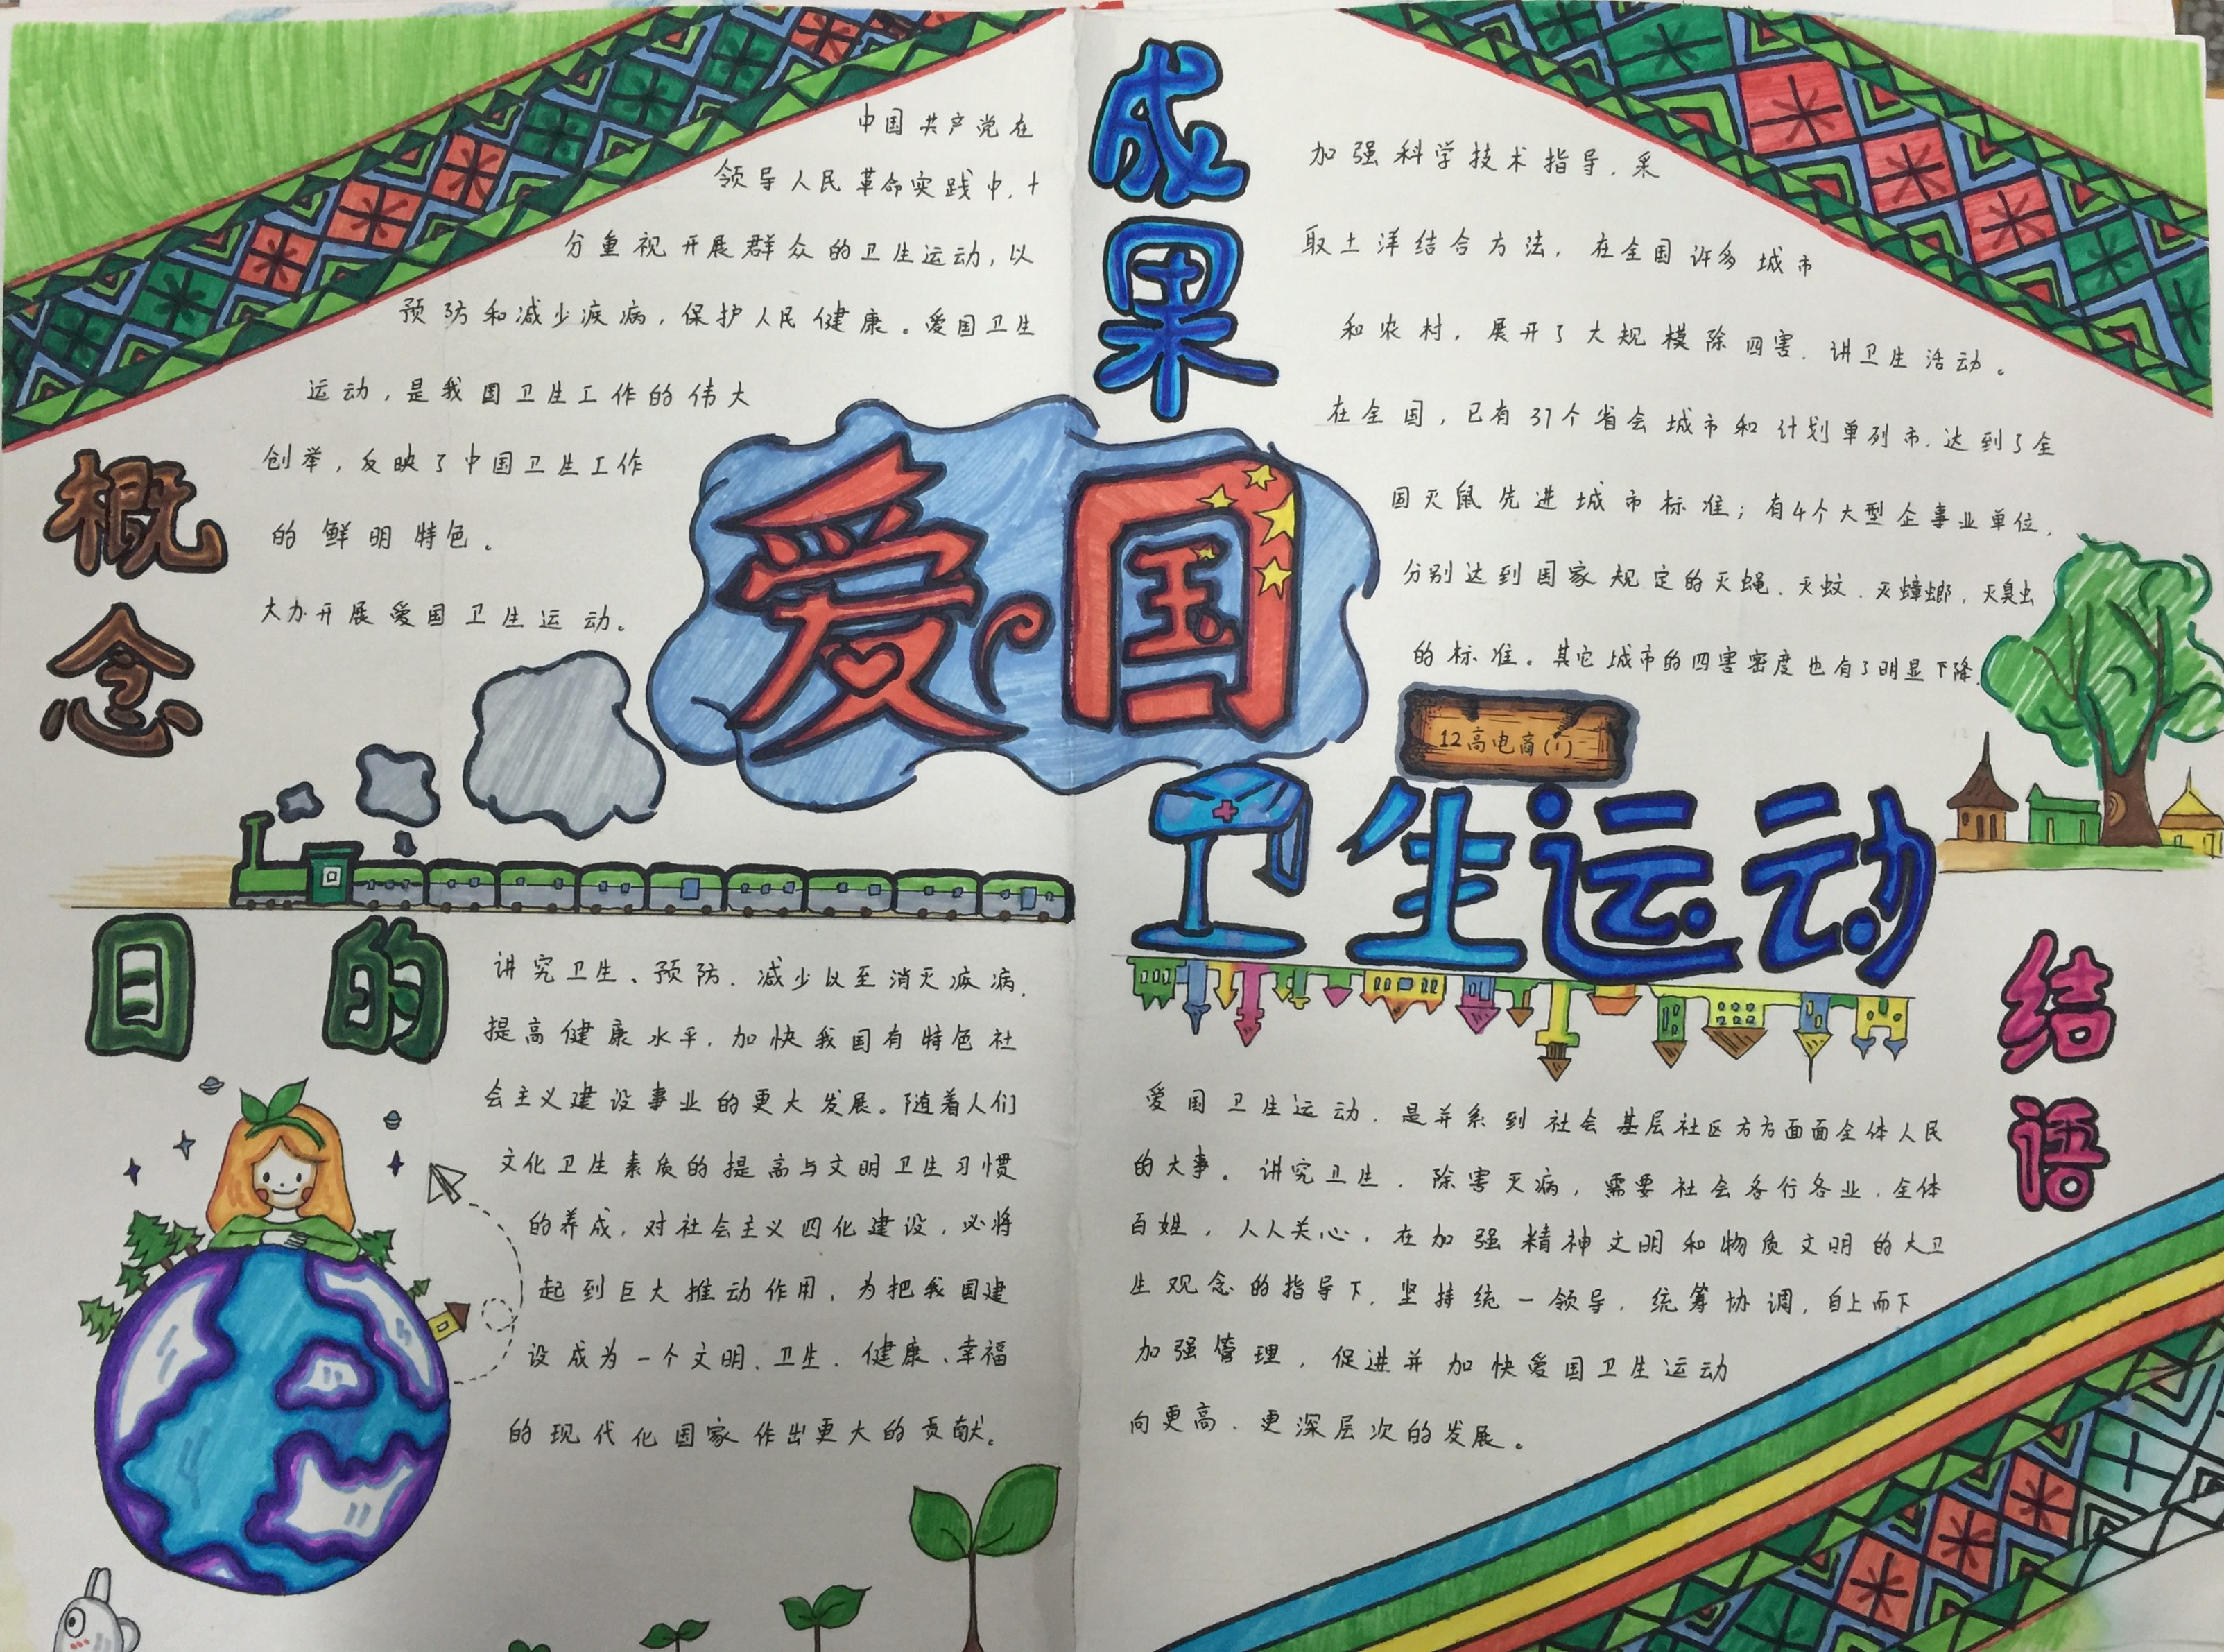 概念
中国共产党在
领导人民革命实践中,十
分重视开展群众的卫生运动,以
预防和减少疾病,保护人民健康。爱国卫生
运动,是我国卫生工作的伟大
创举,反映了中国卫生工作
的鲜明特色。
大办开展爱国卫生运动。
成果
加强科学技术指导,采
取土洋结合方法,在全国许多城市
和农村,展开了大规模除四害、讲卫生活动。
在全国,已有37个省会城市和计划单列市,达到了全
国灭鼠先进城市标准;有4个大型企事业单位,
分别达到国家规定的灭蝇、灭蚊、灭蟑螂,灭臭虫
的标准。其它城市的四害密度也有了明显下降
爱国
12高电商(1)
卫生运动
目的
讲究卫生、预防、减少以至消灭疾病,
提高健康水平,加快我国有特色社
会主义建设事业的更大发展。随着人们
文化卫生素质的提高与文明卫生习惯
的养成,对社会主义四化建设,必将
起到巨大推动作用,为把我国建
设成为一个文明、卫生、健康、幸福
的现代化国家作出更大的贡献。
结语
爱国卫生运动,是并系到社会基层社区方方面面全体人民
的大事。讲究卫生,除害灭病,需要社会各行各业,全体
百姓,人人关心,在加强精神文明和物质文明的大卫
生观念的指导下,坚持统一领导,统筹协调,自上而下
加强管理,促进并加快爱国卫生运动
向更高、更深层次的发展。